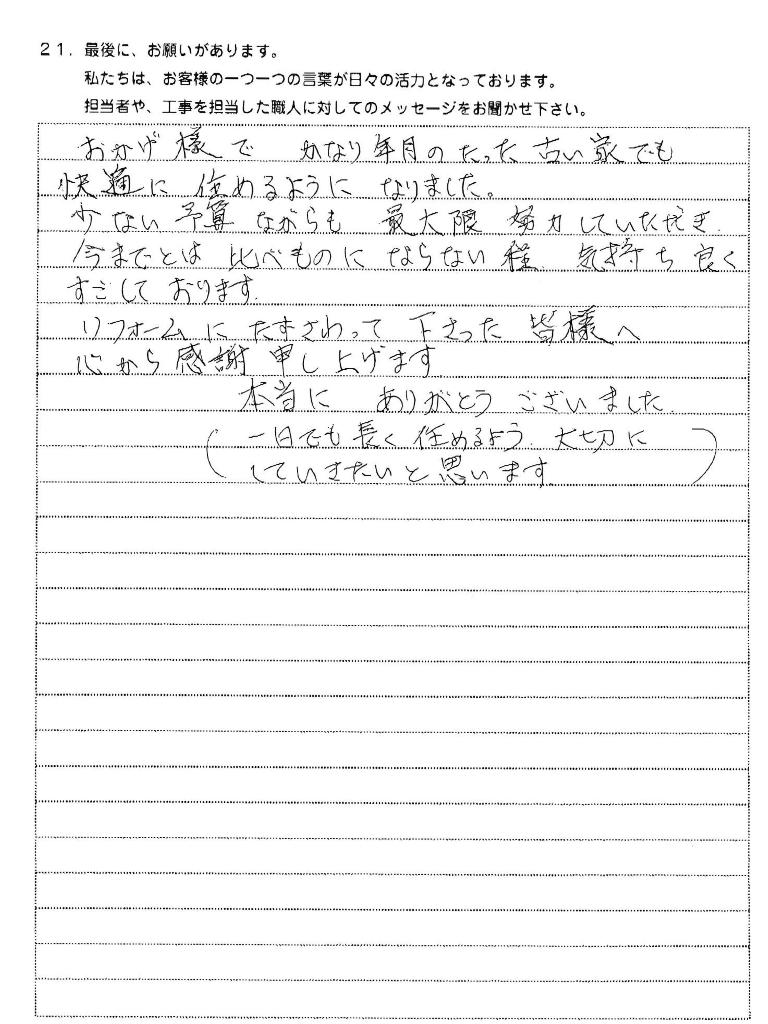 21. 最後に、お願いがあります。
私たちは、お客様の一つ一つの言葉が日々の活力となっております。
担当者や、工事を担当した職人に対してのメッセージをお聞かせ下さい。
おかげ様で かなり年月のたった古い家でも
快適に住めるようになりました。
少ない予算ながらも 最大限努力していただき.
今までとは比べものにならない程 気持ち良く
すごしております.
リフォームにたずさわって下さった皆様へ
心から感謝申し上げます
本当に ありがとうございました.
(一日でも長く住めるよう. 大切に
していきたいと思います.)